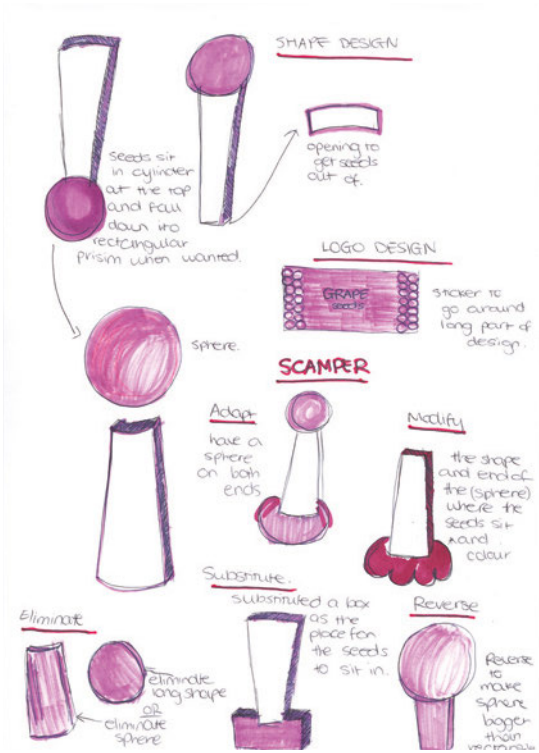 SHAPE DESIGN
seeds sit
in cylinder
at the top
and fall
down into
rectangular
prisim when wanted.
opening to
get seeds
out of.
LOGO DESIGN
GRAPE
seeds
sticker to
go around
long part of
design.
sphere.
SCAMPER
Adapt
have a
sphere
on both
ends
Modify
the shape
and end of
the (sphere)
where the
seeds sit
and
colour
Substitute.
substituted a box
as the
place for
the seeds
to sit in.
Eliminate
eliminate
long shape
OR
eliminate
sphere
Reverse
Reverse
to
make
sphere
bigger
than